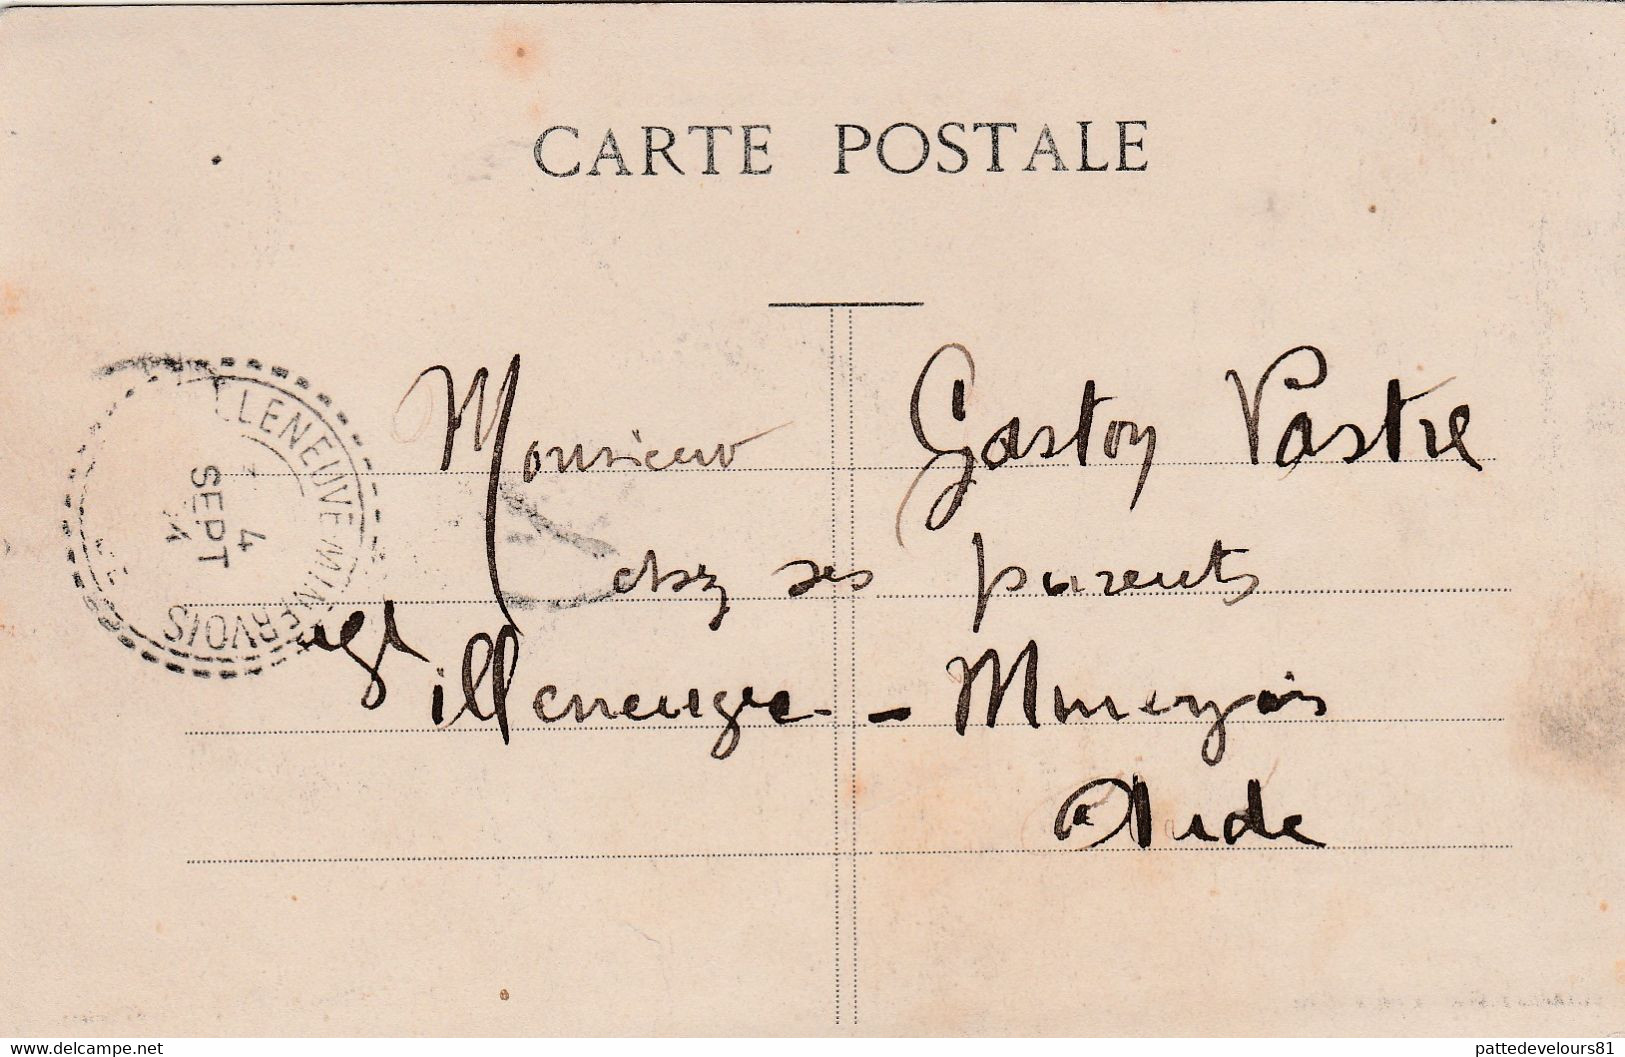 CARTE POSTALE
Monsieur Gaston Vastre
chez ses parents
Villeneuve - Minervois
Aude
LLENEUVE-MINERVOIS
4
SEPT
Delcampe.net
pattedevelours81